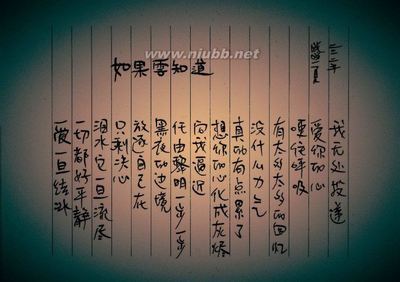 www.niubb.net
如果雲知道
爱一旦结冰
一切都好平静
泪水它一旦流尽
只剩决心
放逐自己在
黑夜的边境
任由黎明一步一步
向我逼近
想你的心化成灰烬
真的有点累了
没什么力气
有太多太多的回忆
哽住呼吸
爱你的心
我无处投递